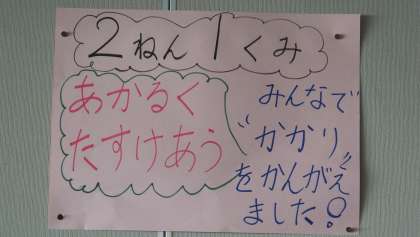 2ねん1くみ
あかるく
たすけあう
みんなで
"かかり"
をかんがえ
ました!